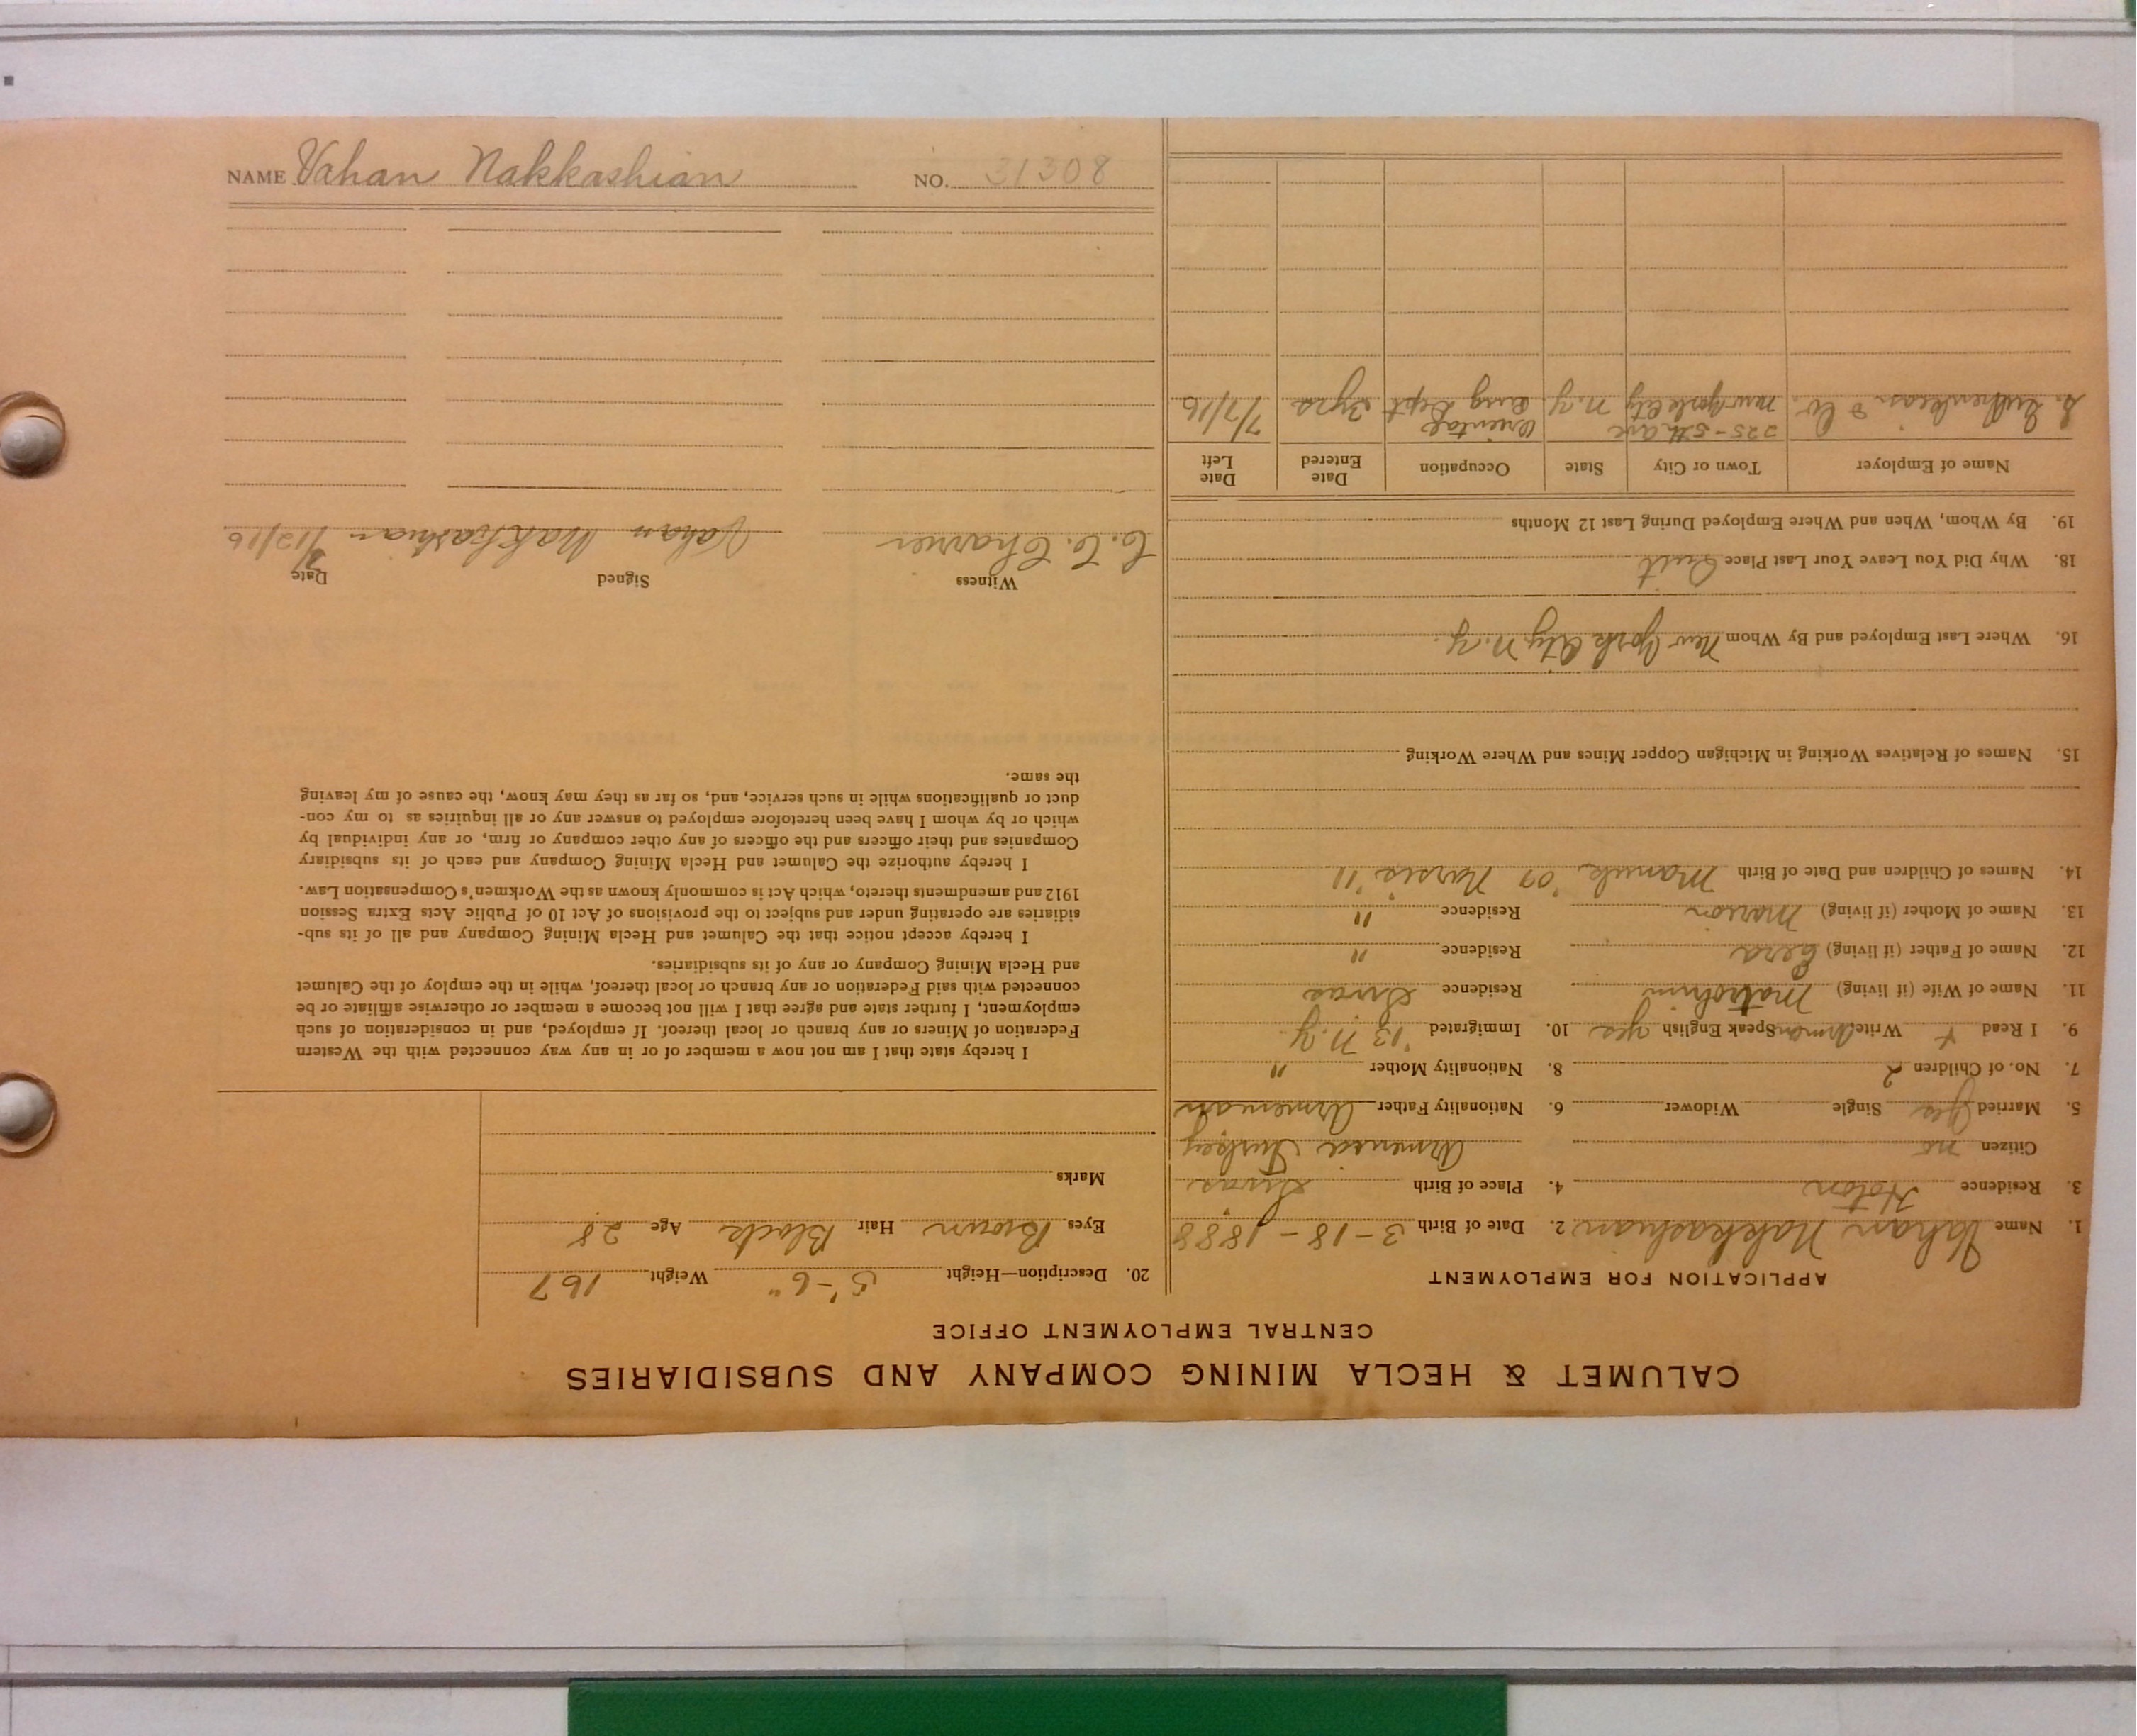 NAME Vahan Nakkashian NO. 31308
CALUMET & HECLA MINING COMPANY AND SUBSIDIARIES
CENTRAL EMPLOYMENT OFFICE
APPLICATION FOR EMPLOYMENT
1. Name Vahan Nakkashian 2. Date of Birth 3-18-1888
3. Residence Hotan 4. Place of Birth Sivas
Citizen no Armenia Turkey
5. Married Yes Single Widower 6. Nationality Father Armenian
7. No. of Children 2 8. Nationality Mother "
9. I Read + Write Armen Speak English yes 10. Immigrated '13 N.Y.
11. Name of Wife (if living) Residence Sivas
12. Name of Father (if living) Residence "
13. Name of Mother (if living) Residence "
14. Names of Children and Date of Birth Manuk '07 Narses '11
15. Names of Relatives Working in Michigan Copper Mines and Where Working
16. Where Last Employed and By Whom New York City N.Y.
18. Why Did You Leave Your Last Place Quit
19. By Whom, When and Where Employed During Last 12 Months
Name of Employer Town or City State Occupation Date Entered Date Left
225-5th Ave Oriental
& Co. New York City N.Y. Rug Dept 3yrs 7/7/16
20. Description—Height 5'-6" Weight 167
Eyes Brown Hair Black Age 28
Marks
I hereby state that I am not now a member of or in any way connected with the Western
Federation of Miners or any branch or local thereof. If employed, and in consideration of such
employment, I further state and agree that I will not become a member or otherwise affiliate or be
connected with said Federation or any branch or local thereof, while in the employ of the Calumet
and Hecla Mining Company or any of its subsidiaries.
I hereby accept notice that the Calumet and Hecla Mining Company and all of its sub-
sidiaries are operating under and subject to the provisions of Act 10 of Public Acts Extra Session
1912 and amendments thereto, which Act is commonly known as the Workmen's Compensation Law.
I hereby authorize the Calumet and Hecla Mining Company and each of its subsidiary
Companies and their officers and the officers of any other company or firm, or any individual by
which or by whom I have been heretofore employed to answer any or all inquiries as to my con-
duct or qualifications while in such service, and, so far as they may know, the cause of my leaving
the same.
Witness Signed Date
C. C. Charrier Vahan Nakkashian 7/12/16